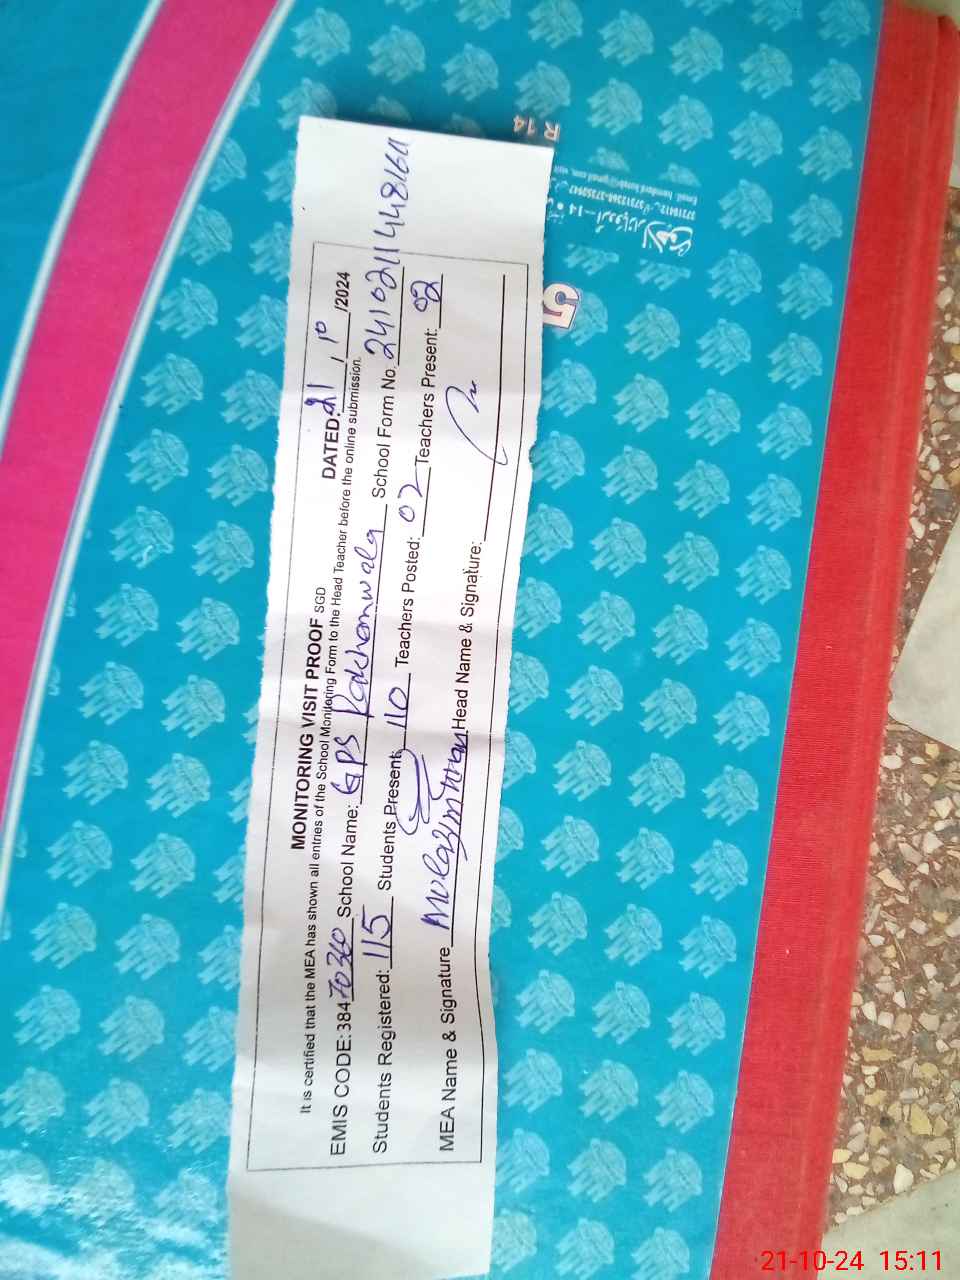 MONITORING VISIT PROOF SGD DATED: 21 / 10 /2024
It is certified that the MEA has shown all entries of the School Monitoring Form to the Head Teacher before the online submission.
EMIS CODE: 38470360 School Name: GPS School Form No. 241021144816
Students Registered: 115 Students Present: 110 Teachers Posted: 02 Teachers Present: 02
MEA Name & Signature Head Name & Signature:
R 14
5
21-10-24 15:11